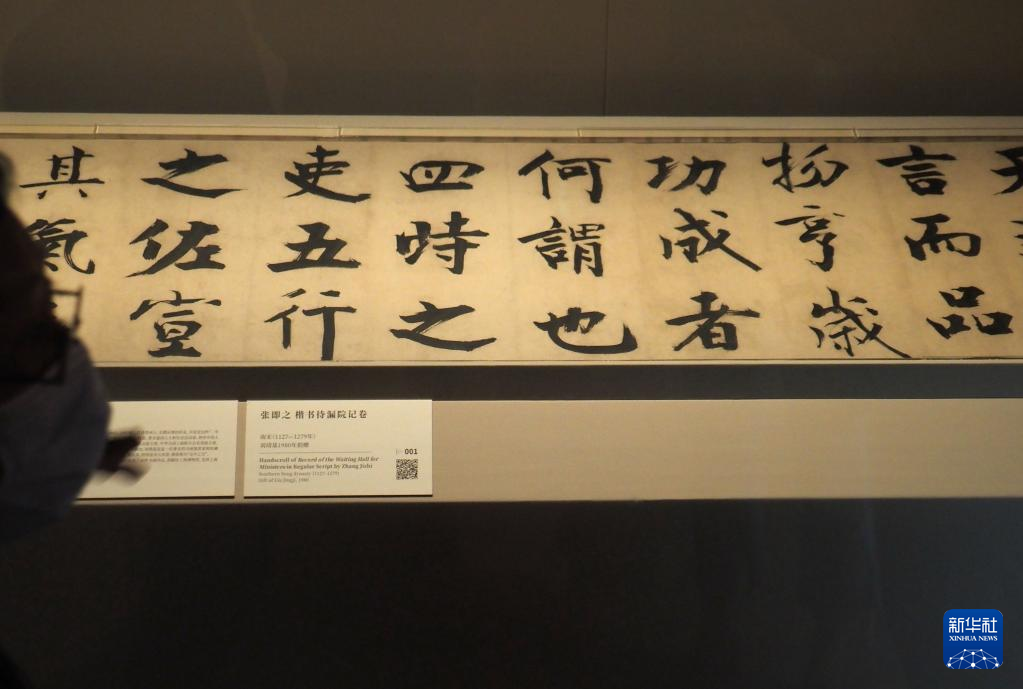 言而品
物亨歲
功成者
何謂也
四時之
吏五行
之佐宣
其氣
张即之 楷书待漏院记卷
南宋（1127—1279年）
刘靖基1980年捐赠
001
Handscroll of Record of the Waiting Hall for
Ministers in Regular Script by Zhang Jizhi
Southern Song dynasty (1127-1279)
Gift of Liu Jingji, 1980
新华社
XINHUA NEWS